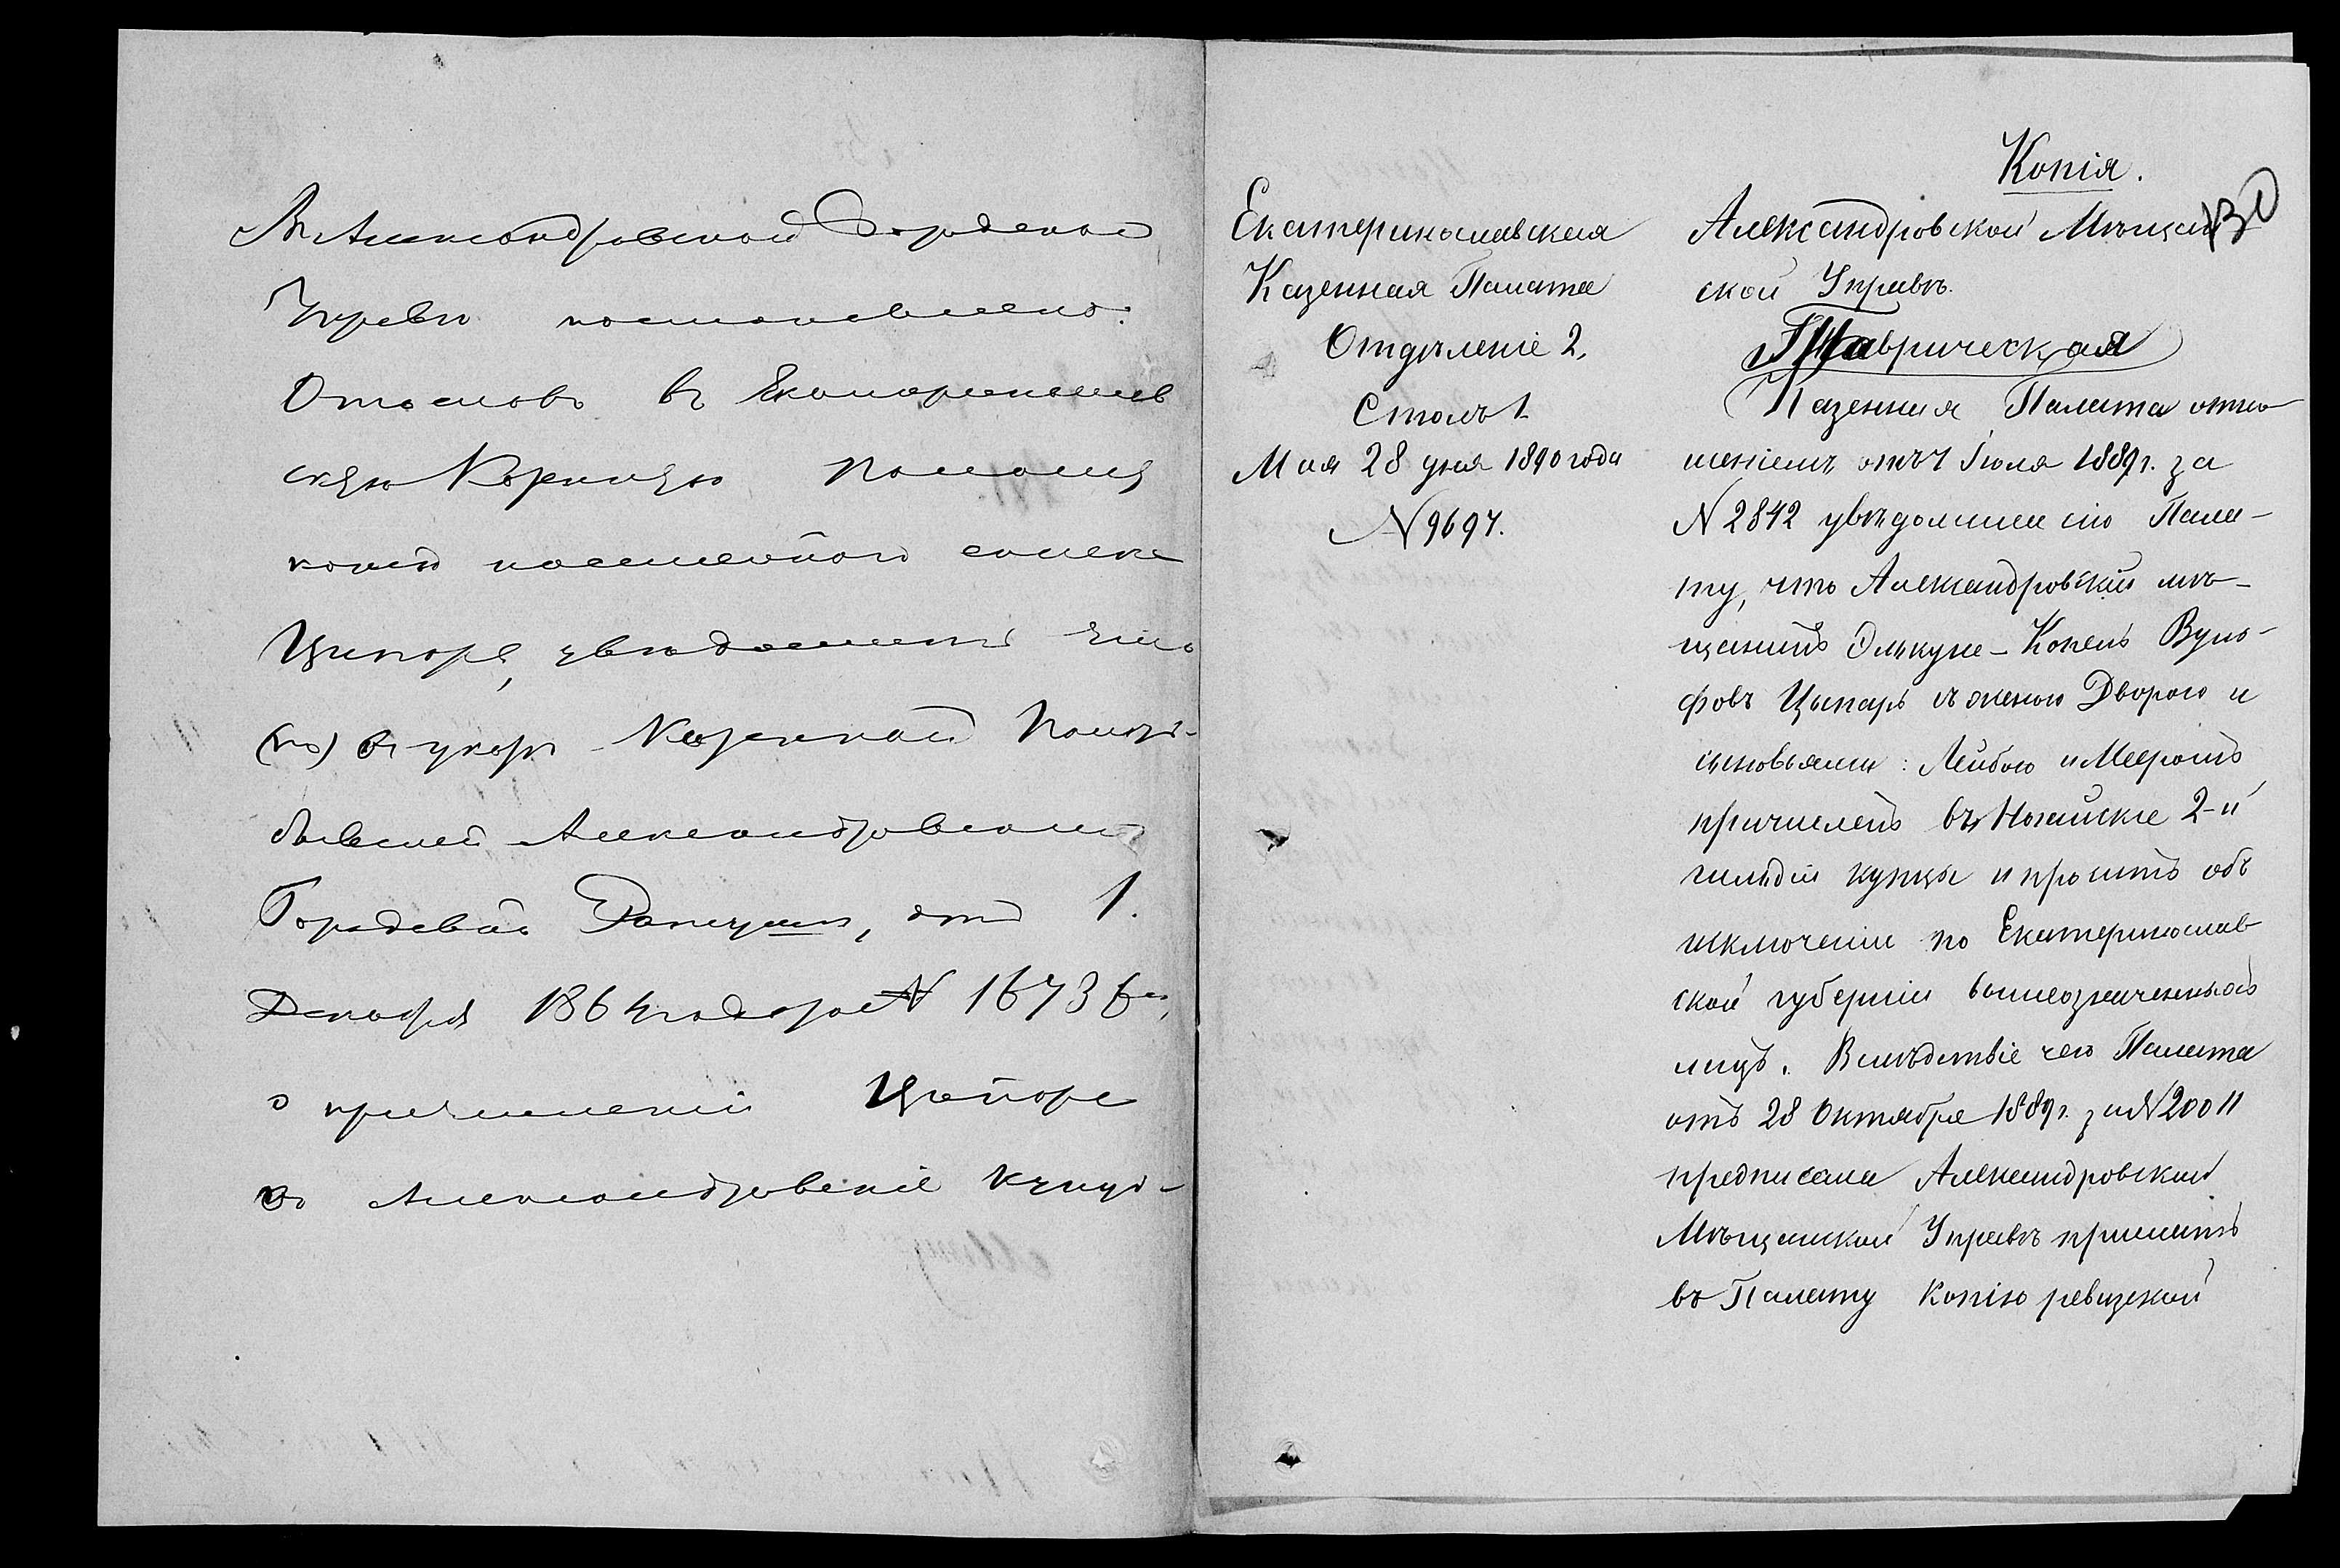 Въ Александровской Городской
Управѣ постановлено:
Отословъ въ Екатеринослав
скую Казенную Палату
копію посемейного списка
Ципоре, увѣдомить что
(по) въ указѣ Казенной Палаты
бывшей Александровской
Городовой Ратуши, отъ 1.
Декабря 1864 года за № 16736
о причисленіи Ципоре
въ Александровскіе купцы
130
Копія.
Екатеринославская
Казенная Палата
Отдѣленіе 2.
Столъ 1.
Мая 28 дня 1890 года
№ 9697.
Александровской Мѣщан
ской Управѣ.
Таврическая
Казенная Палата отно
шеніемъ отъ 7 Іюля 1889 г. за
№ 2842 увѣдомила сію Пала-
ту, что Александровскій мѣ-
щанинъ Элькуне-Копель Вуль-
фовъ Цыпаръ съ женою Дворою и
сыновьями: Лейбою и Мееромъ
причисленъ въ Ногайскіе 2-й
гильдіи купцы и проситъ объ
исключеніи по Екатеринослав
ской губерніи вышеозначенныхъ
лицъ. Вслѣдствіе чего Палата
отъ 28 Октября 1889 г. за № 20011
предписала Александровской
Мѣщанской Управѣ прислать
въ Палату копію ревизской